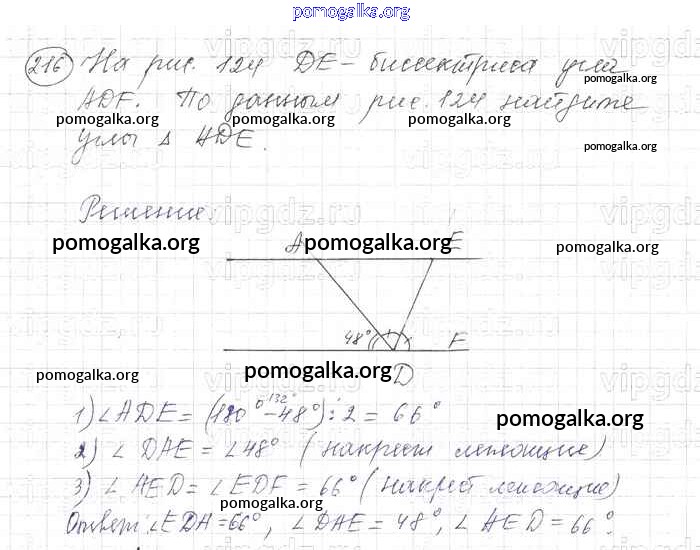 pomogalka.org
216 На рис. 124 DE – биссектриса угла
pomogalka.org
ADF. По данным рис. 124 найдите
pomogalka.org pomogalka.org pomogalka.org
углы Δ ADE.
pomogalka.org
Решение.
vipgdz.ru
pomogalka.org A pomogalka.org E pomogalka.org
48° F
pomogalka.org pomogalka.org D
1) ∠ADE = (180° – 48°) : 2 = 66°
132°
pomogalka.org
2) ∠ DAE = ∠48° (накрест лежащие)
3) ∠ AED = ∠ EDF = 66° (накрест лежащие)
pomogalka.org
Ответ: ∠EDA = 66°, ∠ DAE = 48°, ∠ AED = 66°.